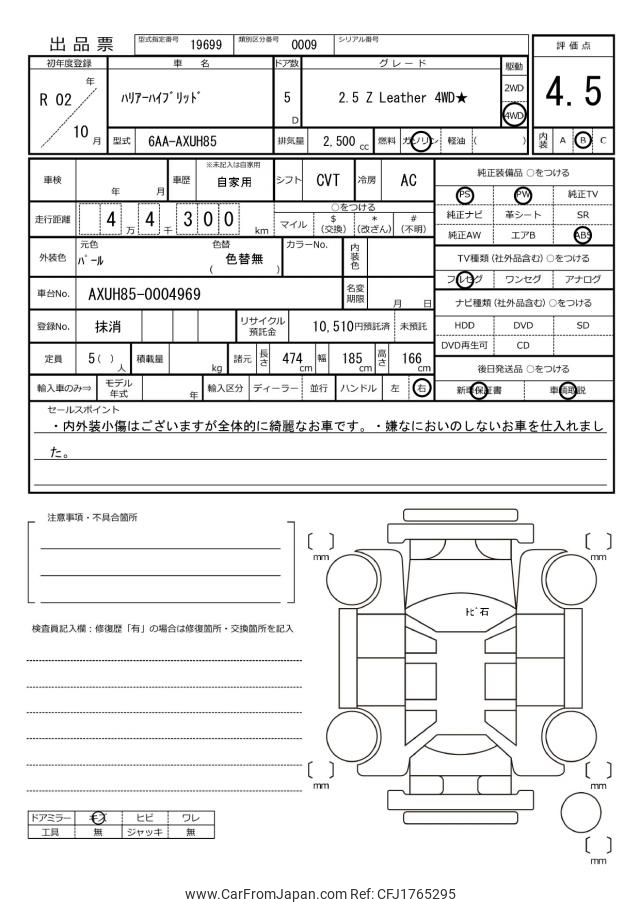 出品票 型式指定番号 19699 類別区分番号 0009 シリアル番号
評価点
初年度登録 車名 ドア数 グレード 駆動
R 02 年 10 月 ﾊﾘｱｰﾊｲﾌﾞﾘｯﾄﾞ 5 D 2.5 Z Leather 4WD★ 2WD 4WD
4.5
型式 6AA-AXUH85 排気量 2,500 cc 燃料 ガソリン 軽油 ( ) 内装 A B C
車検 年 月 車歴 ※未記入は自家用 自家用 シフト CVT 冷房 AC
純正装備品 ○をつける
PS PW 純正TV
走行距離 4 万 4 千 3 0 0 km ○をつける
マイル $ (交換) * (改ざん) # (不明)
純正ナビ 革シート SR
純正AW エアB ABS
外装色 元色 ﾊﾟｰﾙ 色替 色替無 ( ) カラーNo. 内装色
TV種類 (社外品含む) ○をつける
フルセグ ワンセグ アナログ
車台No. AXUH85-0004969 名変期限 月 日
ナビ種類 (社外品含む) ○をつける
登録No. 抹消 リサイクル預託金 10,510円預託済 未預託
HDD DVD SD
DVD再生可 CD
定員 5( ) 人 積載量 kg 諸元 長さ 474 cm 幅 185 cm 高さ 166 cm
後日発送品 ○をつける
輸入車のみ⇒ モデル年式 年 輸入区分 ディーラー 並行 ハンドル 左 右
新車保証書 車輌取説
セールスポイント
・内外装小傷はございますが全体的に綺麗なお車です。・嫌なにおいのしないお車を仕入れまし
た。
注意事項・不具合箇所
mm mm
ﾄﾋﾞ石
検査員記入欄：修復歴「有」の場合は修復箇所・交換箇所を記入
mm mm
ドアミラー キズ ヒビ ワレ
工具 無 ジャッキ 無
mm
www.CarFromJapan.com Ref: CFJ1765295